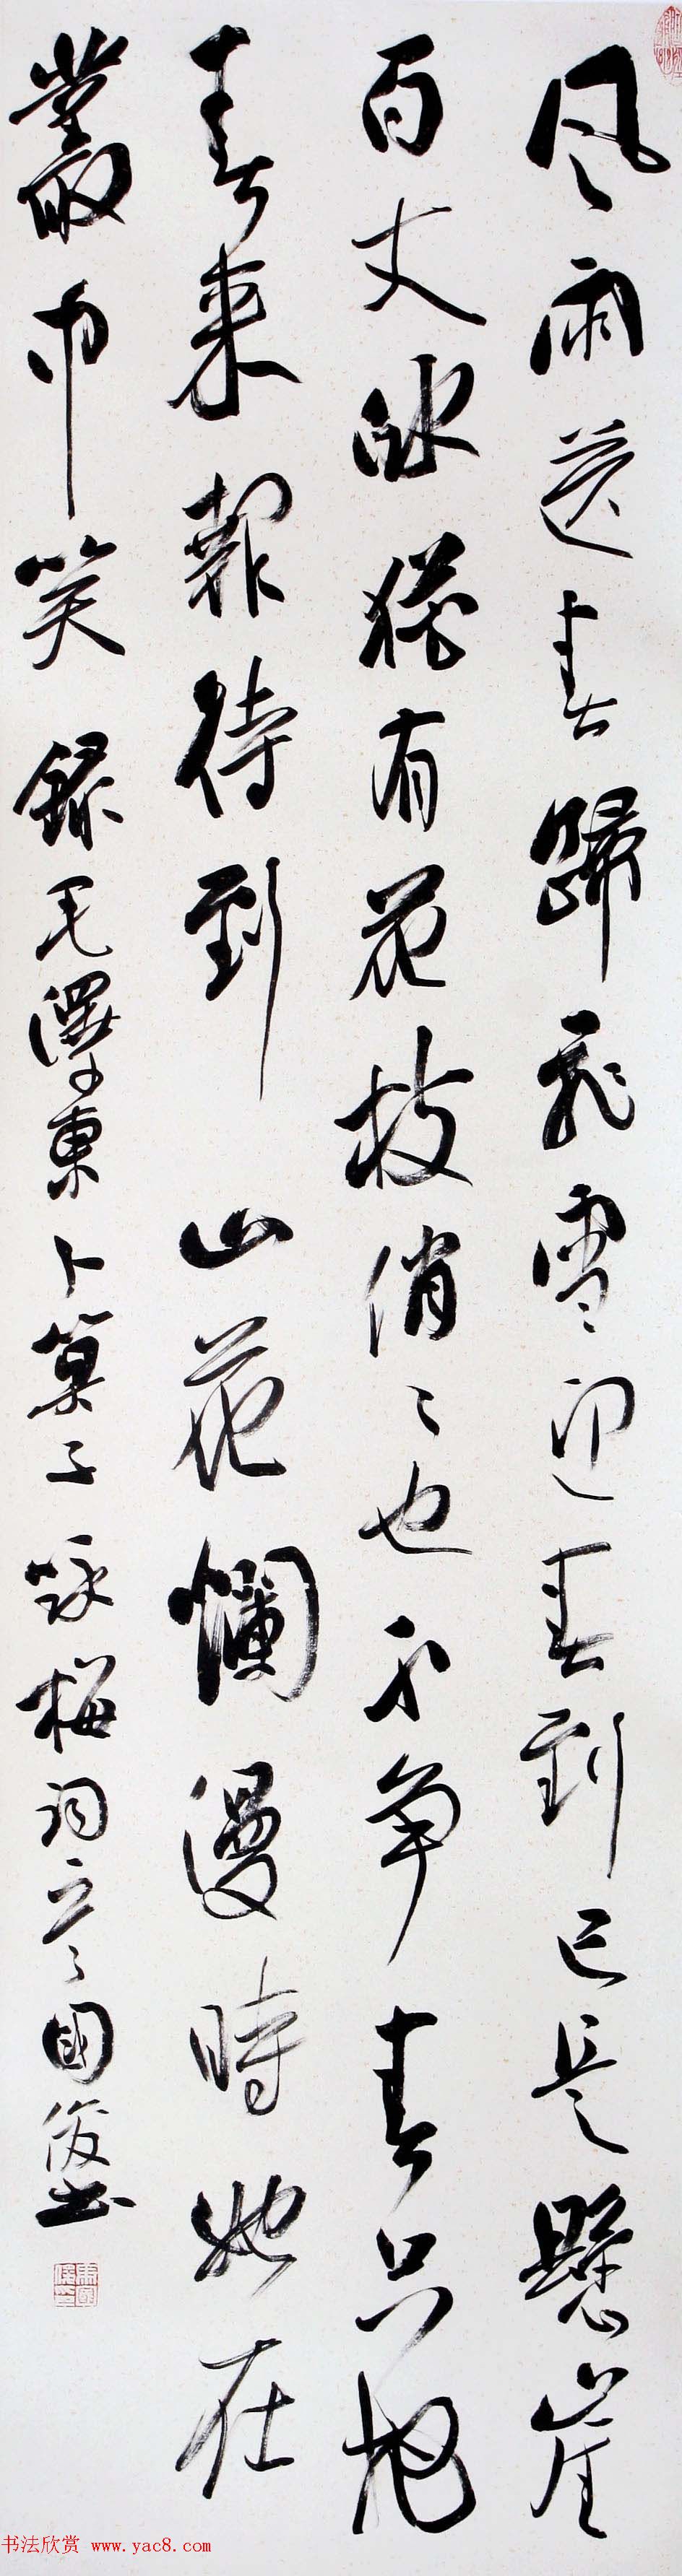 风雨送春歸飛雪迎春到已是懸崖
百丈冰猶有花枝俏々也不争春只把
春来報待到山花爛漫時她在
叢中笑 録毛澤東卜算子詠梅詞 國俊書
书法欣赏 www.yac8.com